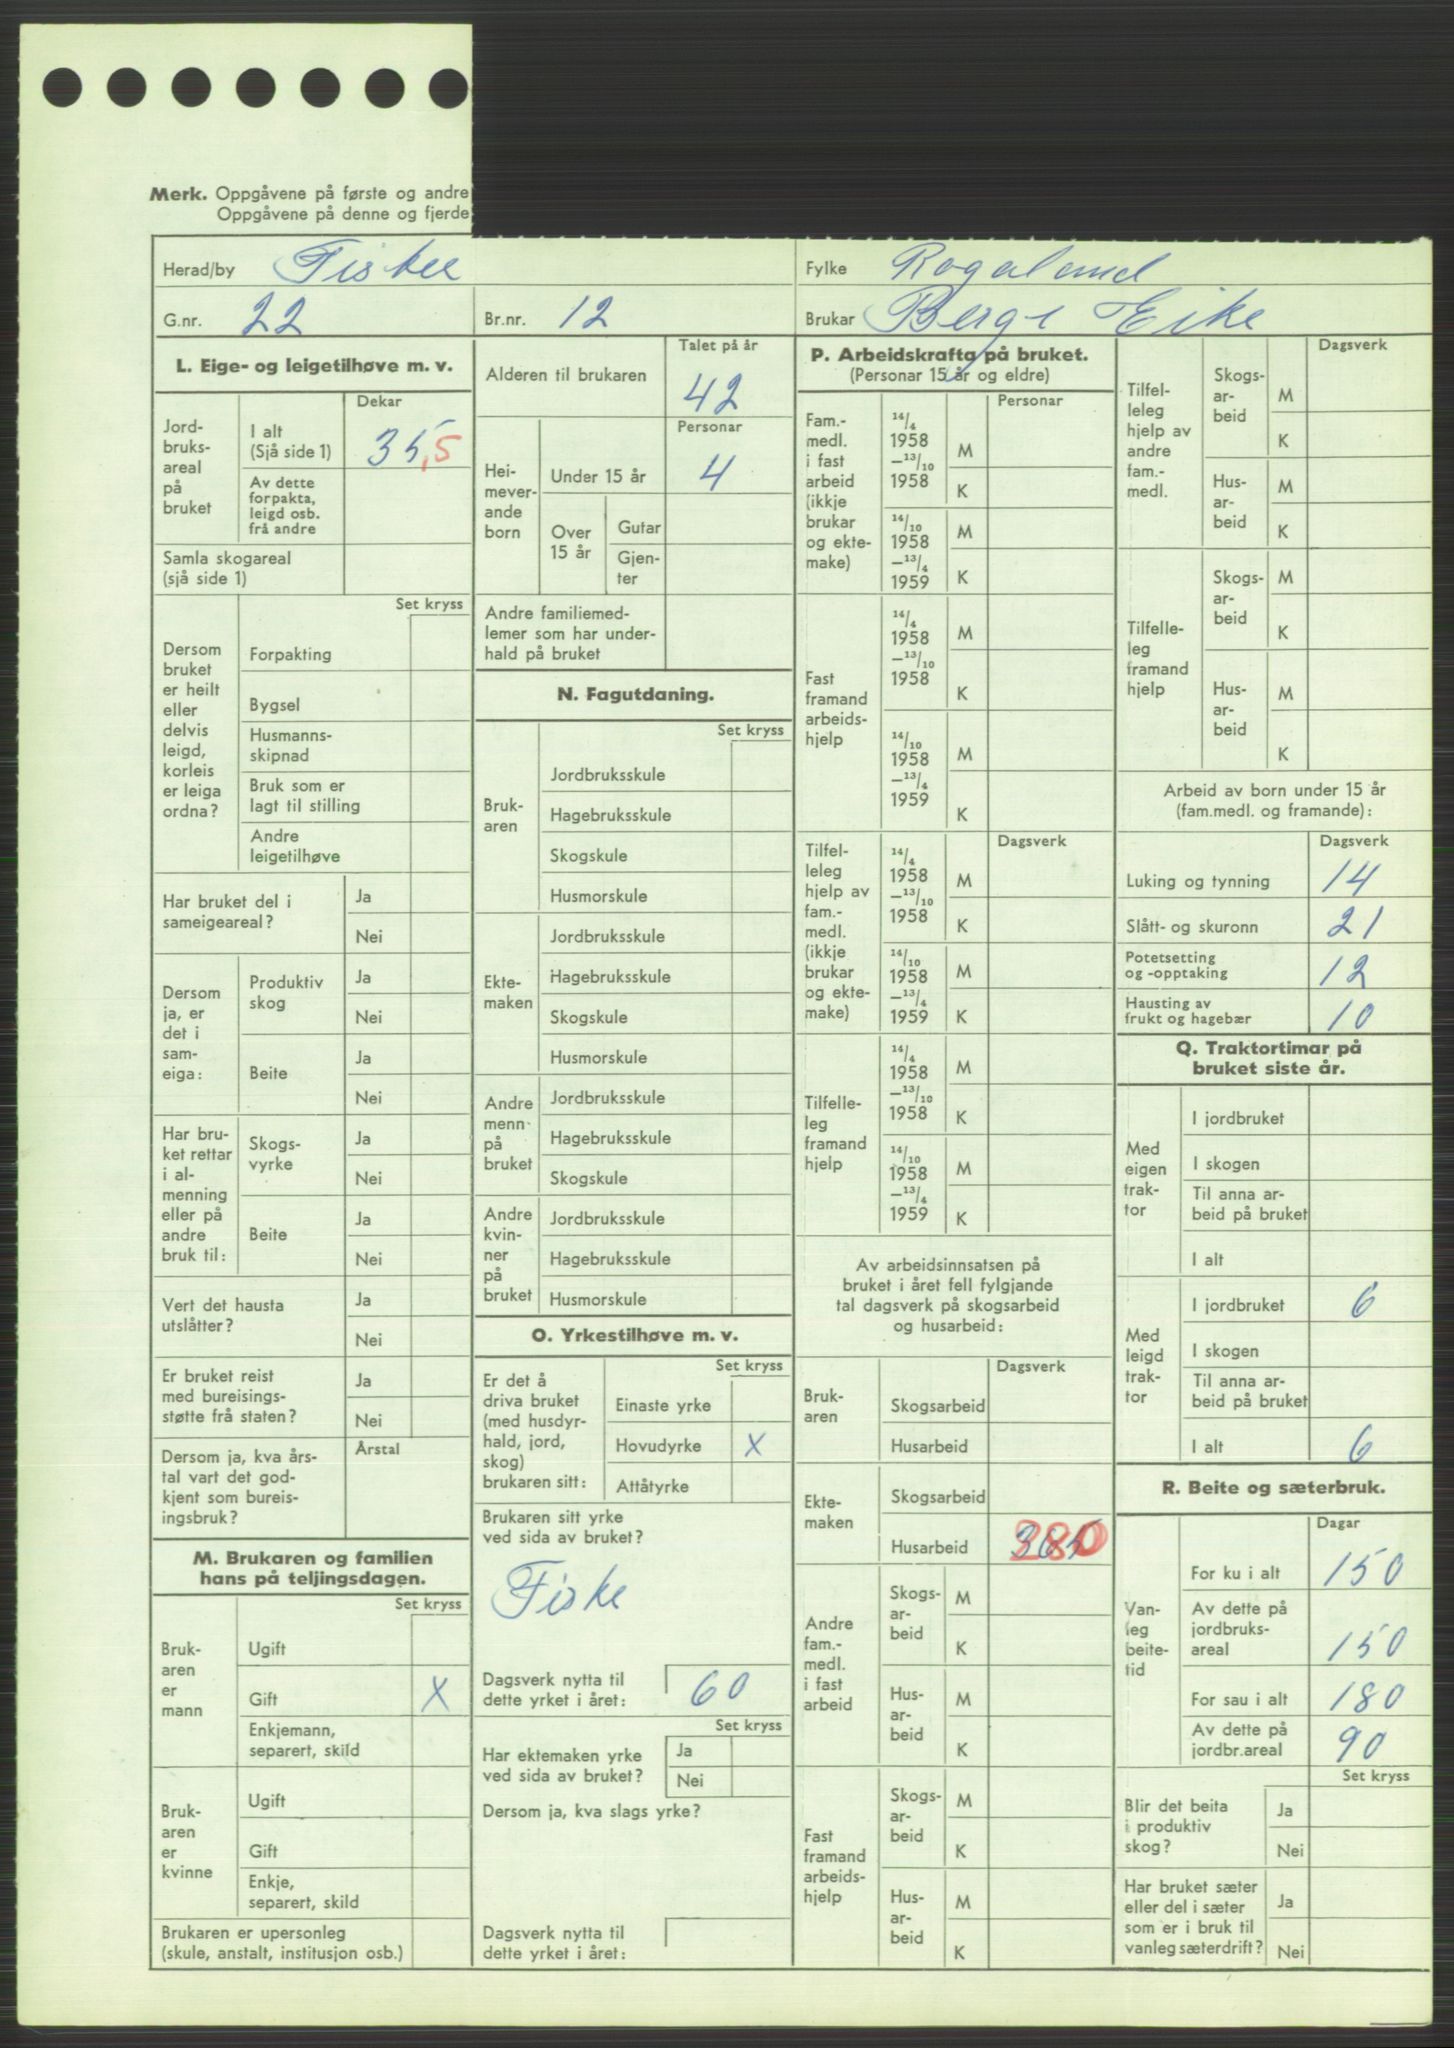 Merk. Oppgåvene på første og andre
Oppgåvene på denne og fjerde
Herad/by Fister
Fylke Rogaland
G.nr. 22
Br.nr. 12
Brukar Berge Eike
L. Eige- og leigetilhøve m. v.
Dekar
Jord-
bruks-
areal
på
bruket
I alt
(Sjå side 1) 35,5
Av dette
forpakta,
leigd osb.
frå andre
Samla skogareal
(sjå side 1)
Set kryss
Dersom
bruket
er heilt
eller
delvis
leigd,
korleis
er leiga
ordna?
Forpakting
Bygsel
Husmanns-
skipnad
Bruk som er
lagt til stilling
Andre
leigetilhøve
Har bruket del i
sameigeareal?
Ja
Nei
Dersom
ja, er
det i
sam-
eiga:
Produktiv
skog
Ja
Nei
Beite
Ja
Nei
Har bru-
ket rettar
i al-
menning
eller på
andre
bruk til:
Skogs-
vyrke
Ja
Nei
Beite
Ja
Nei
Vert det hausta
utslåtter?
Ja
Nei
Er bruket reist
med bureisings-
støtte frå staten?
Ja
Nei
Dersom ja, kva års-
tal vart det god-
kjent som bureis-
ingsbruk?
Årstal
M. Brukaren og familien
hans på teljingsdagen.
Set kryss
Bruk-
aren
er
mann
Ugift
Gift X
Enkjemann,
separert, skild
Bruk-
aren
er
kvinne
Ugift
Gift
Enkje,
separert, skild
Brukaren er upersonleg
(skule, anstalt, institusjon osb.)
Talet på år
Alderen til brukaren 42
Personar
Hei-
mever-
ande
born
Under 15 år 4
Over
15 år
Gutar
Gjen-
ter
Andre familiemed-
lemer som har under-
hald på bruket
N. Fagutdaning.
Set kryss
Bruk-
aren
Jordbruksskule
Hagebruksskule
Skogskule
Husmorskule
Ekte-
maken
Jordbruksskule
Hagebruksskule
Skogskule
Husmorskule
Andre
menn
på
bruket
Jordbruksskule
Hagebruksskule
Skogskule
Andre
kvin-
ner
på
bruket
Jordbruksskule
Hagebruksskule
Husmorskule
O. Yrkestilhøve m. v.
Set kryss
Er det å
driva bruket
(med husdyr-
hald, jord,
skog)
brukaren sitt:
Einaste yrke
Hovudyrke X
Attåtyrke
Brukaren sitt yrke
ved sida av bruket?
Fiske
Dagsverk nytta til
dette yrket i året: 60
Set kryss
Har ektemaken yrke
ved sida av bruket?
Ja
Nei
Dersom ja, kva slags yrke?
Dagsverk nytta til
dette yrket i året:
P. Arbeidskrafta på bruket.
(Personar 15 år og eldre)
Personar
Fam.-
medl.
i fast
arbeid
(ikkje
brukar
og ekte-
make)
14/4
1958
—13/10
1958
M
K
14/10
1958
—13/4
1959
M
K
Fast
framand
arbeids-
hjelp
14/4
1958
—13/10
1958
M
K
14/10
1958
—13/4
1959
M
K
Dagsverk
Tilfel-
leleg
hjelp av
fam.-
medl.
(ikkje
brukar
og ekte-
make)
14/4
1958
—13/10
1958
M
K
14/10
1958
—13/4
1959
M
K
Tilfelle-
leg
framand
hjelp
14/4
1958
—13/10
1958
M
K
14/10
1958
—13/4
1959
M
K
Av arbeidsinnsatsen på
bruket i året fell fylgjande
tal dagsverk på skogsarbeid
og husarbeid:
Dagsverk
Bruk-
aren
Skogsarbeid
Husarbeid
Ekte-
maken
Skogsarbeid
Husarbeid 280
Andre
fam.-
medl.
i fast
arbeid
Skogs-
ar-
beid
M
K
Hus-
ar-
beid
M
K
Fast
framand
arbeids-
hjelp
Skogs-
ar-
beid
M
K
Hus-
ar-
beid
M
K
Dagsverk
Tilfel-
leleg
hjelp av
andre
fam.-
medl.
Skogs-
ar-
beid
M
K
Hus-
ar-
beid
M
K
Tilfelle-
leg
framand
hjelp
Skogs-
ar-
beid
M
K
Hus-
ar-
beid
M
K
Arbeid av born under 15 år
(fam.medl. og framande):
Dagsverk
Luking og tynning 14
Slått- og skuronn 21
Potetsetting
og -opptaking 12
Hausting av
frukt og hagebær 10
Q. Traktortimar på
bruket siste år.
Med
eigen
trak-
tor
I jordbruket
I skogen
Til anna ar-
beid på bruket
I alt
Med
leigd
trak-
tor
I jordbruket 6
I skogen
Til anna ar-
beid på bruket
I alt 6
R. Beite og sæterbruk.
Dagar
Van-
leg
beite-
tid
For ku i alt 150
Av dette på
jordbruks-
areal 150
For sau i alt 180
Av dette på
jordbr.areal 90
Set kryss
Blir det beita
i produktiv
skog?
Ja
Nei
Har bruket sæter
eller del i sæter
som er i bruk til
vanleg sæterdrift?
Ja
Nei